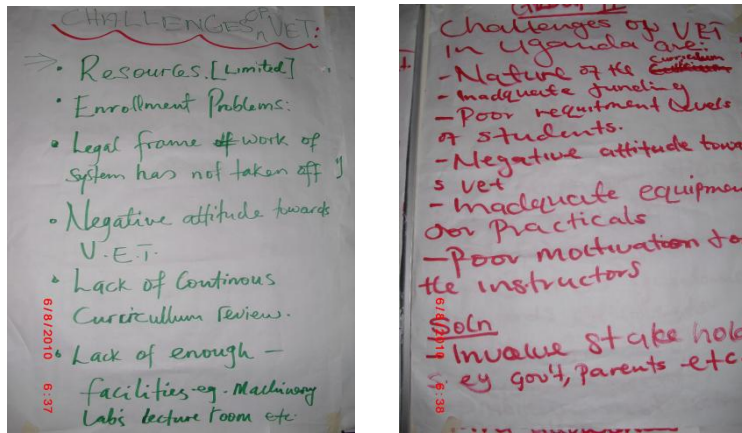 CHALLENGES OF
n VET:
• Resources. [Limited]
• Enrollment Problems:
• Legal frame work of
system has not taken off
• Negative attitude towards
V.E.T.
• Lack of Continous
Curcircullum review.
• Lack of enough –
facilities eg. Machinery
Labs lecture room etc.
6/8/2010 6:37
Challenges of VET
in Uganda are:
- Nature of the curriculum
- Inadquate funding
- Poor requitment levels
of students.
- Negative attitude towa
s vet
- Inadquate equipmen
for Practicals
- Poor motivation to
the instructors
Soln
- Involve stake hold
s eg gov't, parents etc
6/8/2010 6:38